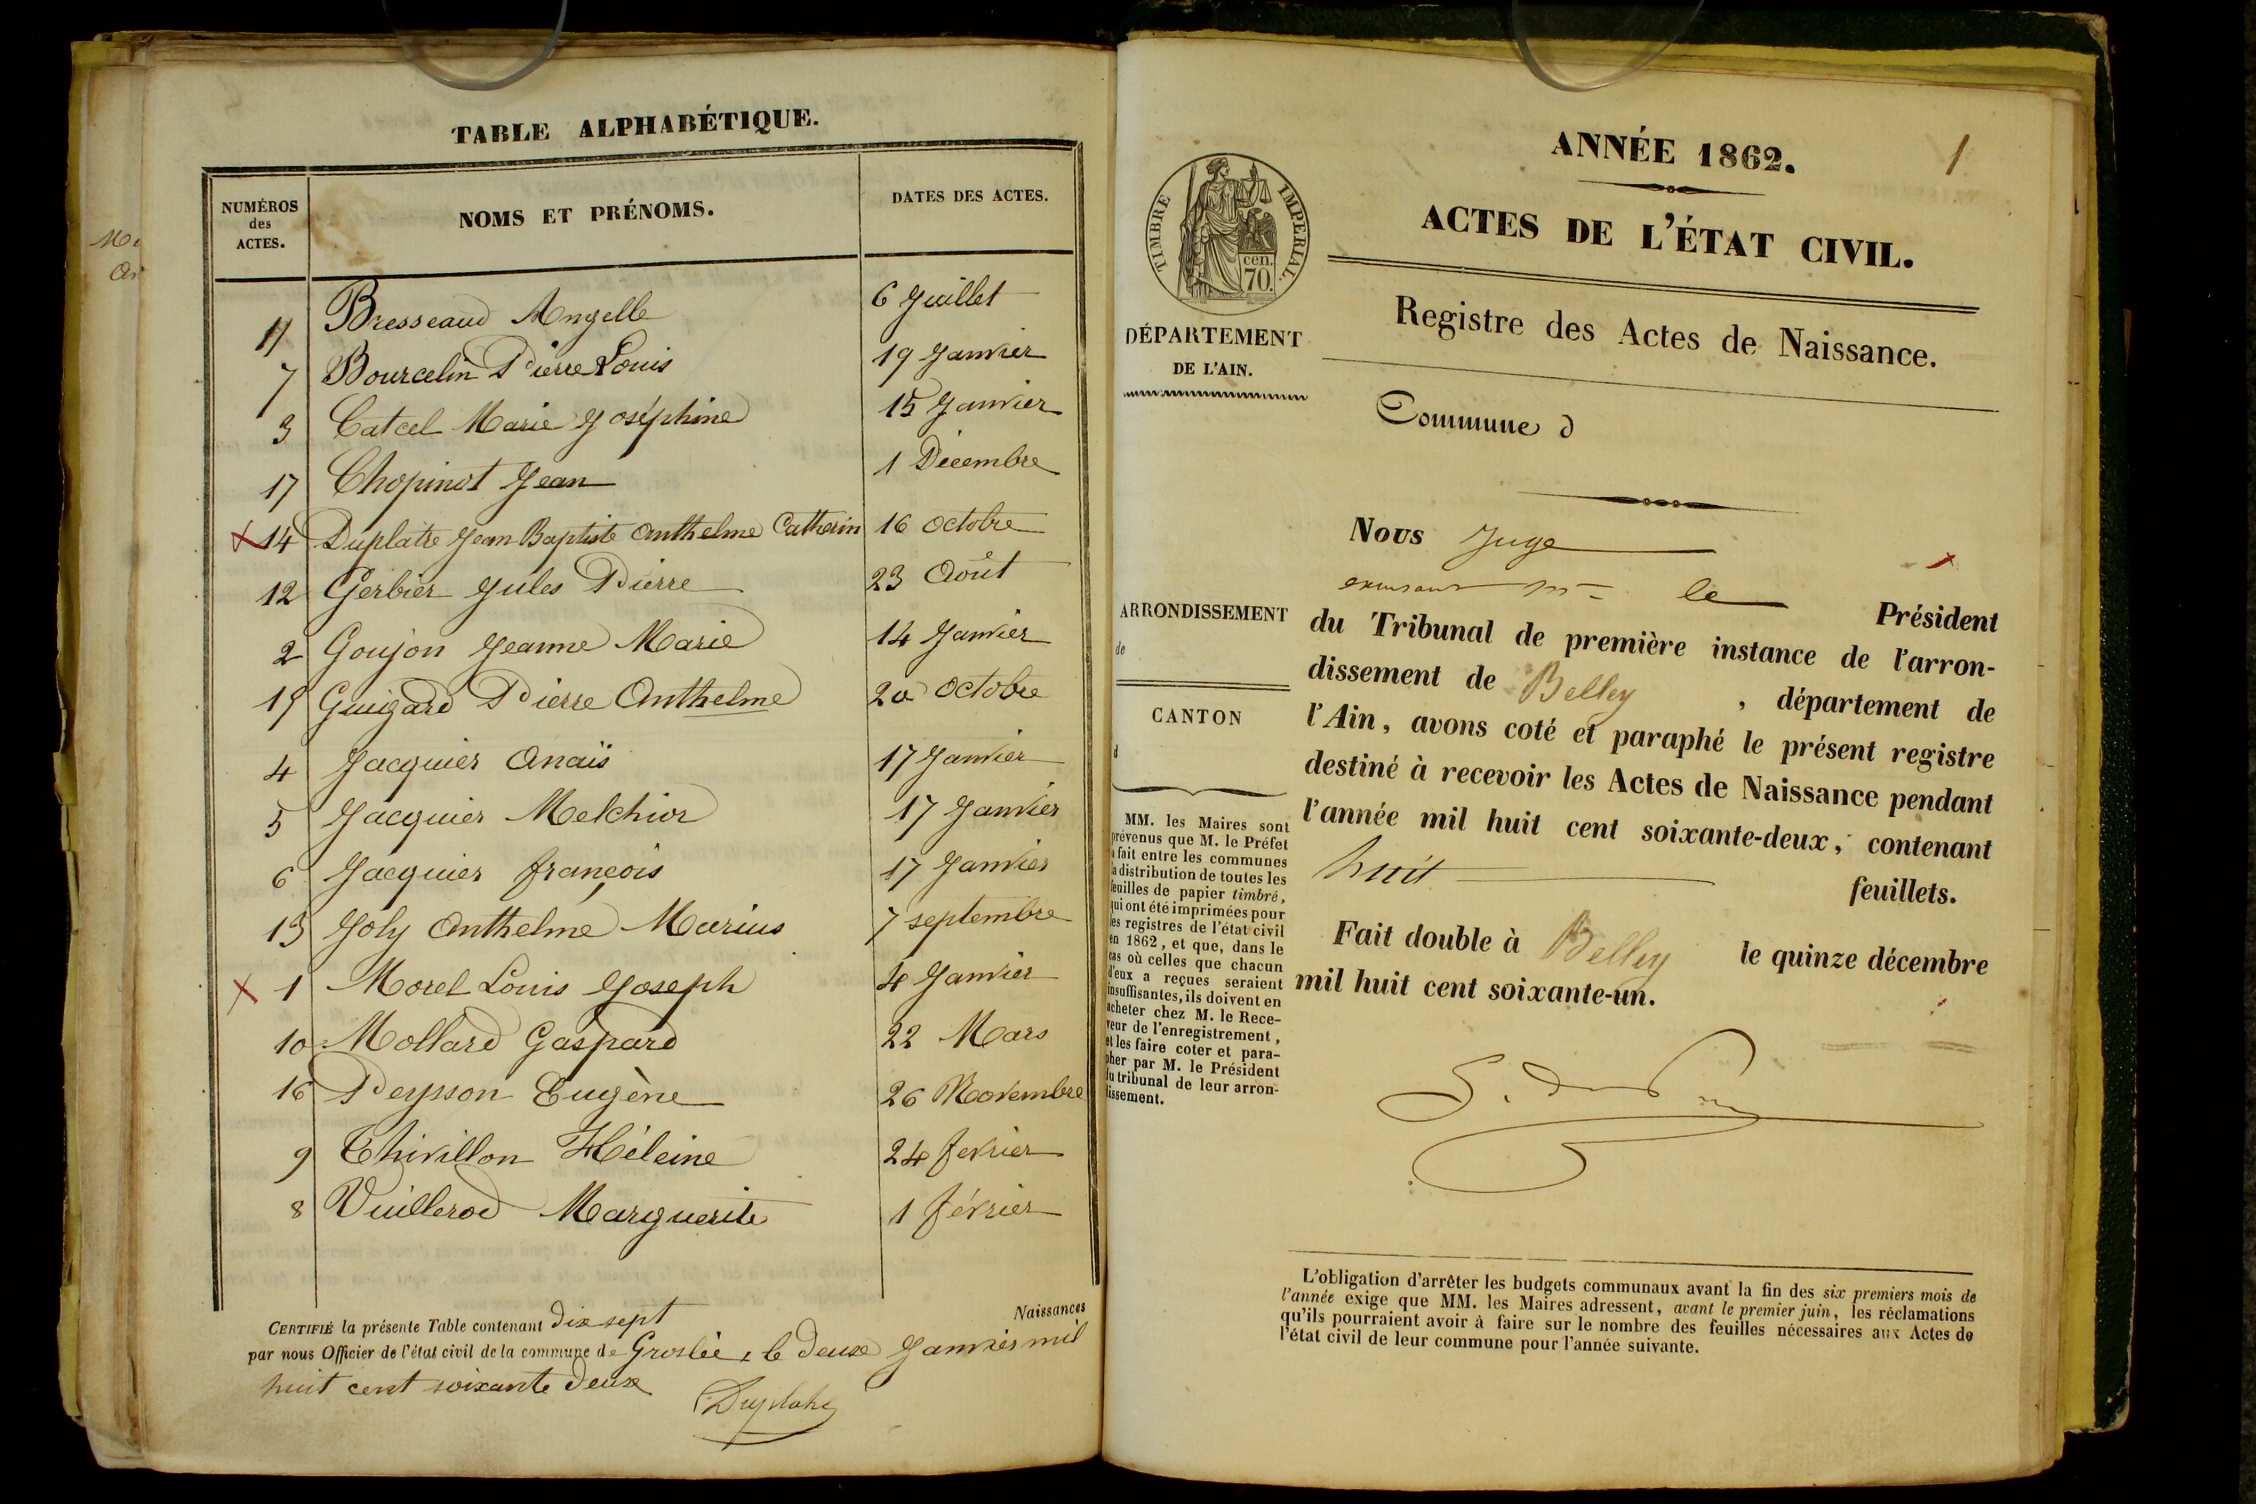 TABLE ALPHABÉTIQUE.
NUMÉROS des ACTES. NOMS ET PRÉNOMS. DATES DES ACTES.
11 Bresseaud Angelle 6 Juillet
7 Bourcelin Pierre Louis 19 Janvier
3 Catcel Marie Joséphine 15 Janvier
17 Chopinot Jean 1 Décembre
14 Duplatre Jean Baptiste Anthelme Catherin 16 octobre
12 Gerbier Jules Pierre 23 Août
2 Goujon Jeanne Marie 14 Janvier
15 Guigard Pierre Anthelme 20 octobre
4 Jacquier Anaïs 17 Janvier
5 Jacquier Melchior 17 Janvier
6 Jacquier françois 17 Janvier
13 Joly Anthelme Marius 7 septembre
1 Morel Louis Joseph 4 Janvier
10 Mollard Gaspard 22 Mars
16 Peysson Eugène 26 Novembre
9 Thivillon Héleine 24 fevrier
8 Vuillerod Marguerite 1 février
CERTIFIÉ la présente Table contenant dix sept Naissances
par nous Officier de l'état civil de la commune de Groslée, le deux Janvier mil
huit cent soixante deux
Duplatre
1
ANNÉE 1862.
ACTES DE L'ÉTAT CIVIL.
TIMBRE IMPERIAL.
cen.
70.
Registre des Actes de Naissance.
DÉPARTEMENT
DE L'AIN.
Commune d
Nous Juge
le Président
du Tribunal de première instance de l'arron-
dissement de Belley, département de
l'Ain, avons coté et paraphé le présent registre
destiné à recevoir les Actes de Naissance pendant
l'année mil huit cent soixante-deux, contenant
huit feuillets.
Fait double à Belley le quinze décembre
mil huit cent soixante-un.
ARRONDISSEMENT
de
CANTON
d
MM. les Maires sont
prévenus que M. le Préfet
a fait entre les communes
la distribution de toutes les
feuilles de papier timbré,
qui ont été imprimées pour
les registres de l'état civil
en 1862, et que, dans le
cas où celles que chacun
d'eux a reçues seraient
insuffisantes, ils doivent en
acheter chez M. le Rece-
veur de l'enregistrement,
et les faire coter et para-
pher par M. le Président
du tribunal de leur arron-
dissement.
L'obligation d'arrêter les budgets communaux avant la fin des six premiers mois de
l'année exige que MM. les Maires adressent, avant le premier juin, les réclamations
qu'ils pourraient avoir à faire sur le nombre des feuilles nécessaires aux Actes de
l'état civil de leur commune pour l'année suivante.